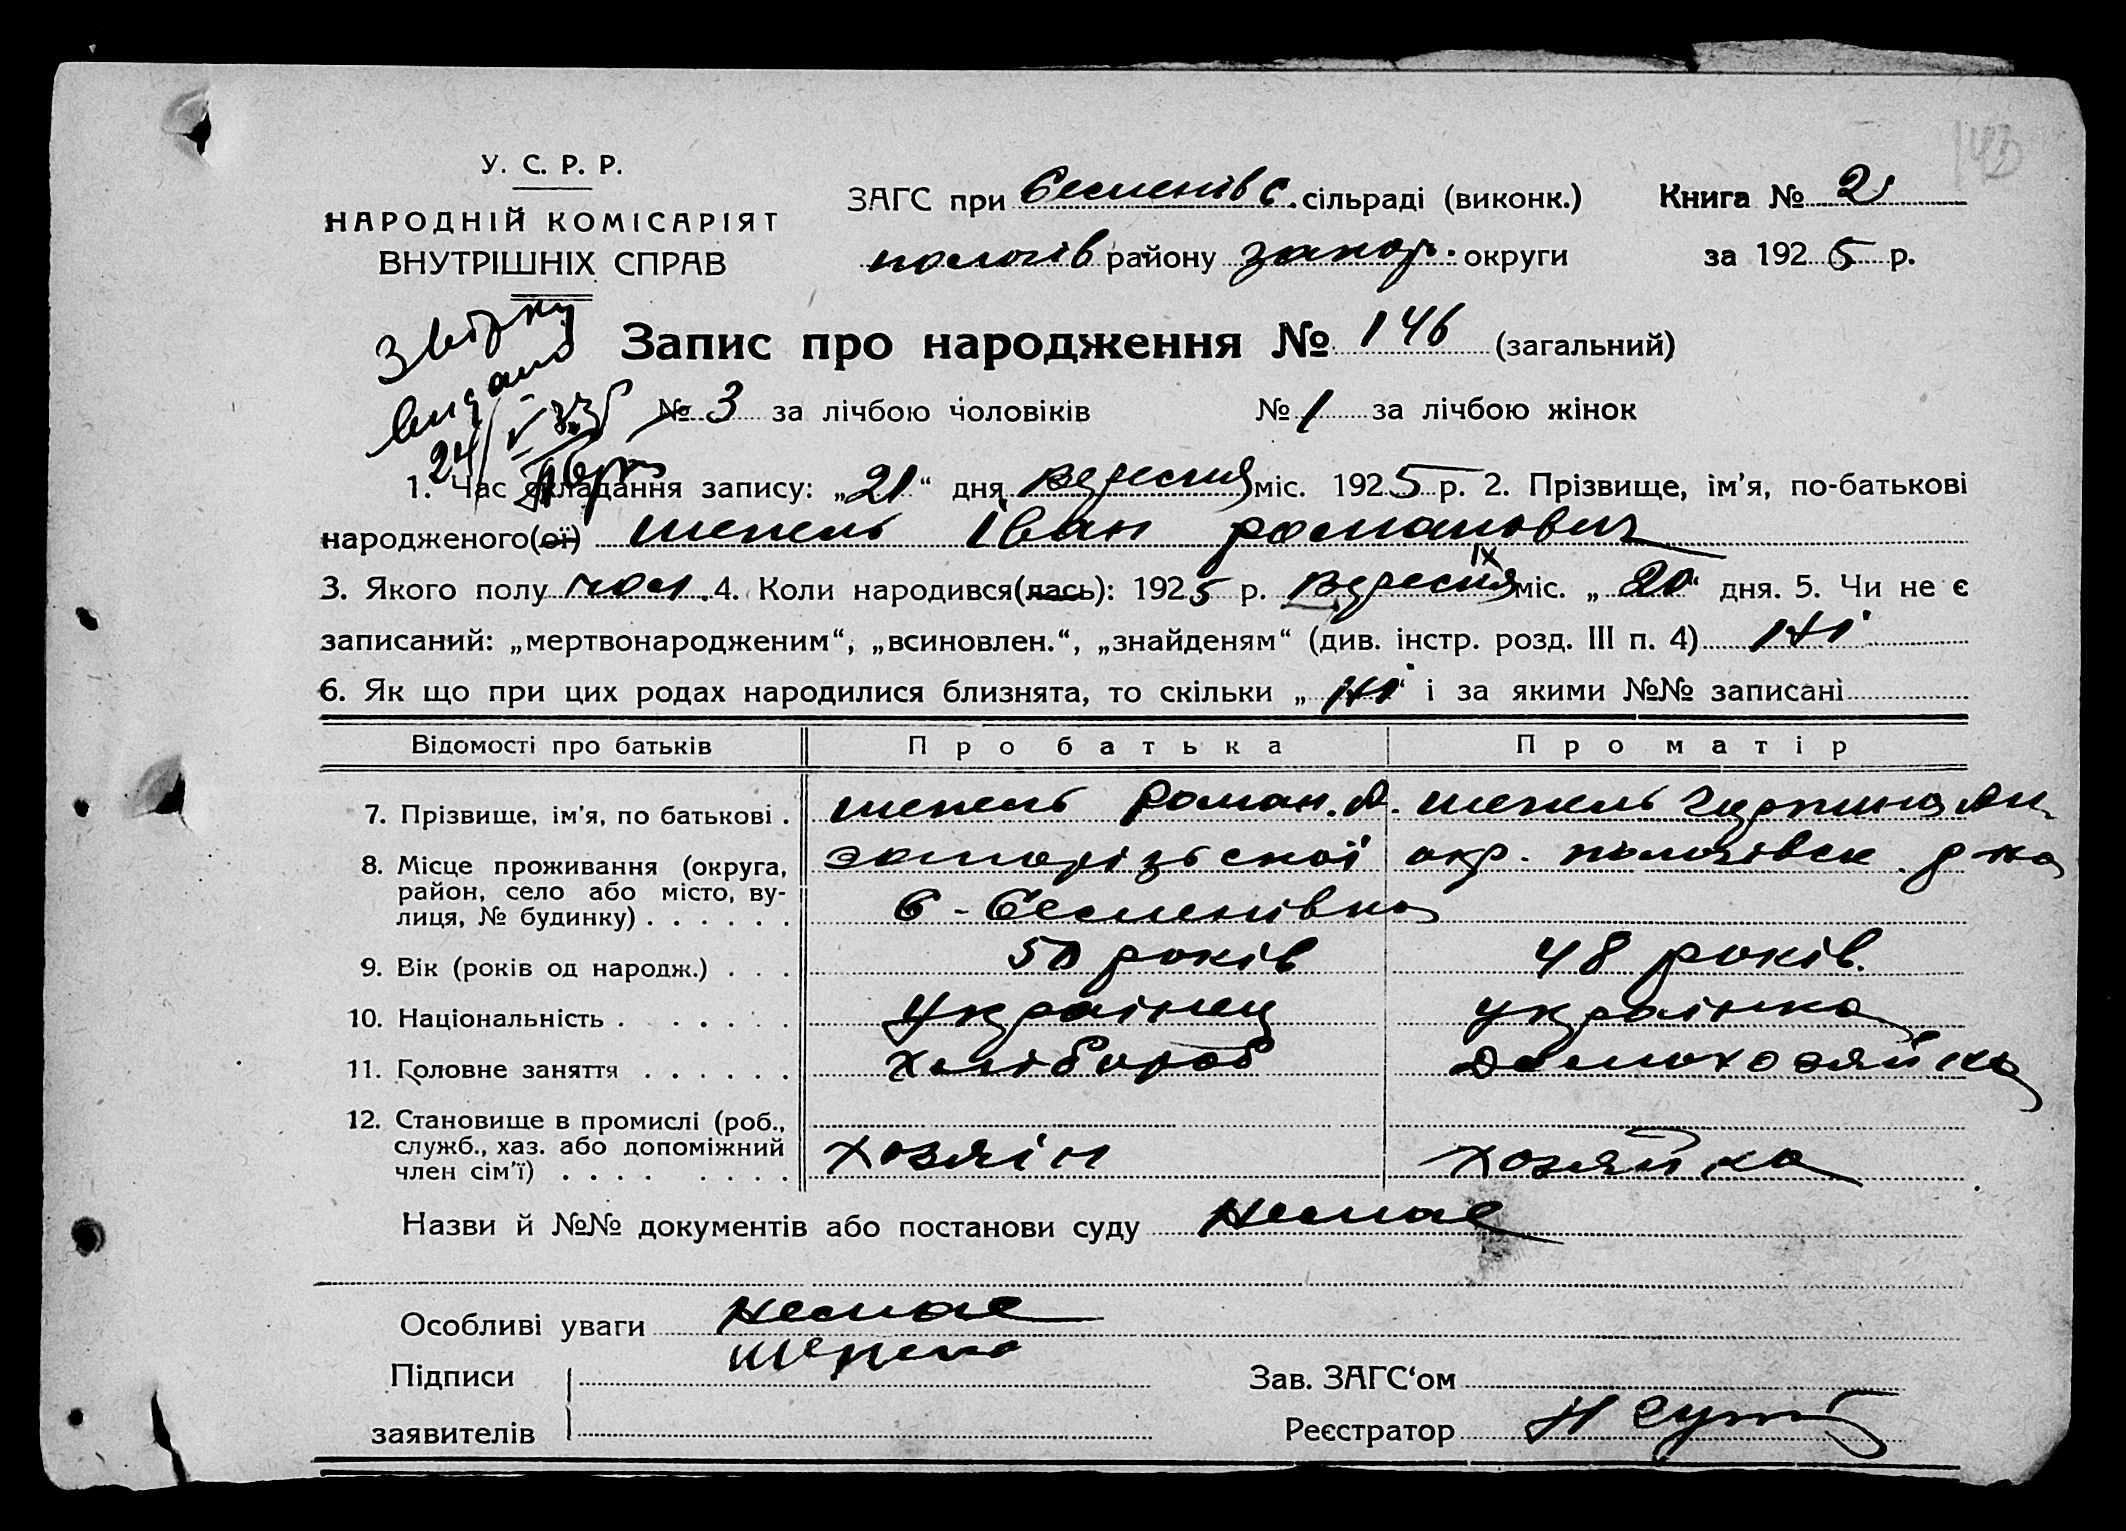 У. С. Р. Р.
НАРОДНІЙ КОМІСАРІЯТ
ВНУТРІШНІХ СПРАВ
ЗАГС при Семенівс. сільраді (виконк.) Книга № 2
пологів району запор. округи за 1925 р.
Запис про народження № 146 (загальний)
№ 3 за лічбою чоловіків № 1 за лічбою жінок
видано
24/V 33
1. Час складання запису: „21“ дня вересня міс. 1925 р. 2. Прізвище, ім'я, по-батькові
народженого(ої) шепель Іван романович
IX
3. Якого полу чол. 4. Коли народився(лась): 1925 р. вересня міс. „20“ дня. 5. Чи не є
записаний: „мертвонародженим“, „всиновлен.“, „знайденям“ (див. інстр. розд. III п. 4) ні
6. Як що при цих родах народилися близнята, то скільки „ні“ і за якими №№ записані
Відомості про батьків Про батька Про матір
7. Прізвище, ім'я, по батькові . шепель Роман. А. шепель
8. Місце проживання (округа, район, село або місто, вулиця, № будинку) . . . . . . запорізьської окр. пологівск. р-на
С-Семенівка
9. Вік (років од народж.) . . . 50 років 48 років.
10. Національність . . . . . . Українец українка
11. Головне заняття . . . . . . хлібороб домохозяйка
12. Становище в промислі (роб., служб., хаз. або допоміжний член сім'ї) . . . . . . . . хозяін хозяйка
Назви й №№ документів або постанови суду Немае
Особливі уваги Немае
Підписи
заявителів
Зав. ЗАГС'ом
Реєстратор